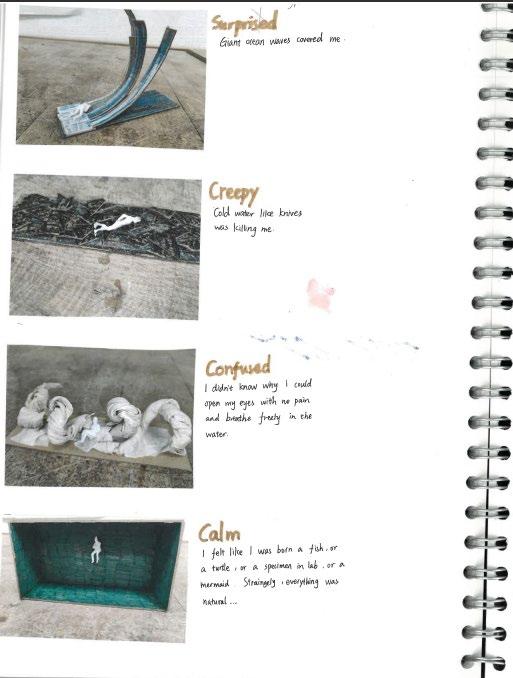 Surprised
Giant ocean waves covered me.
Creepy
Cold water like knives
was killing me.
Confused
I didn't know why I could
open my eyes with no pain
and breathe freely in the
water.
Calm
I felt like I was born a fish, or
a turtle, or a specimen in lab, or a
mermaid. Straingely, everything was
natural...